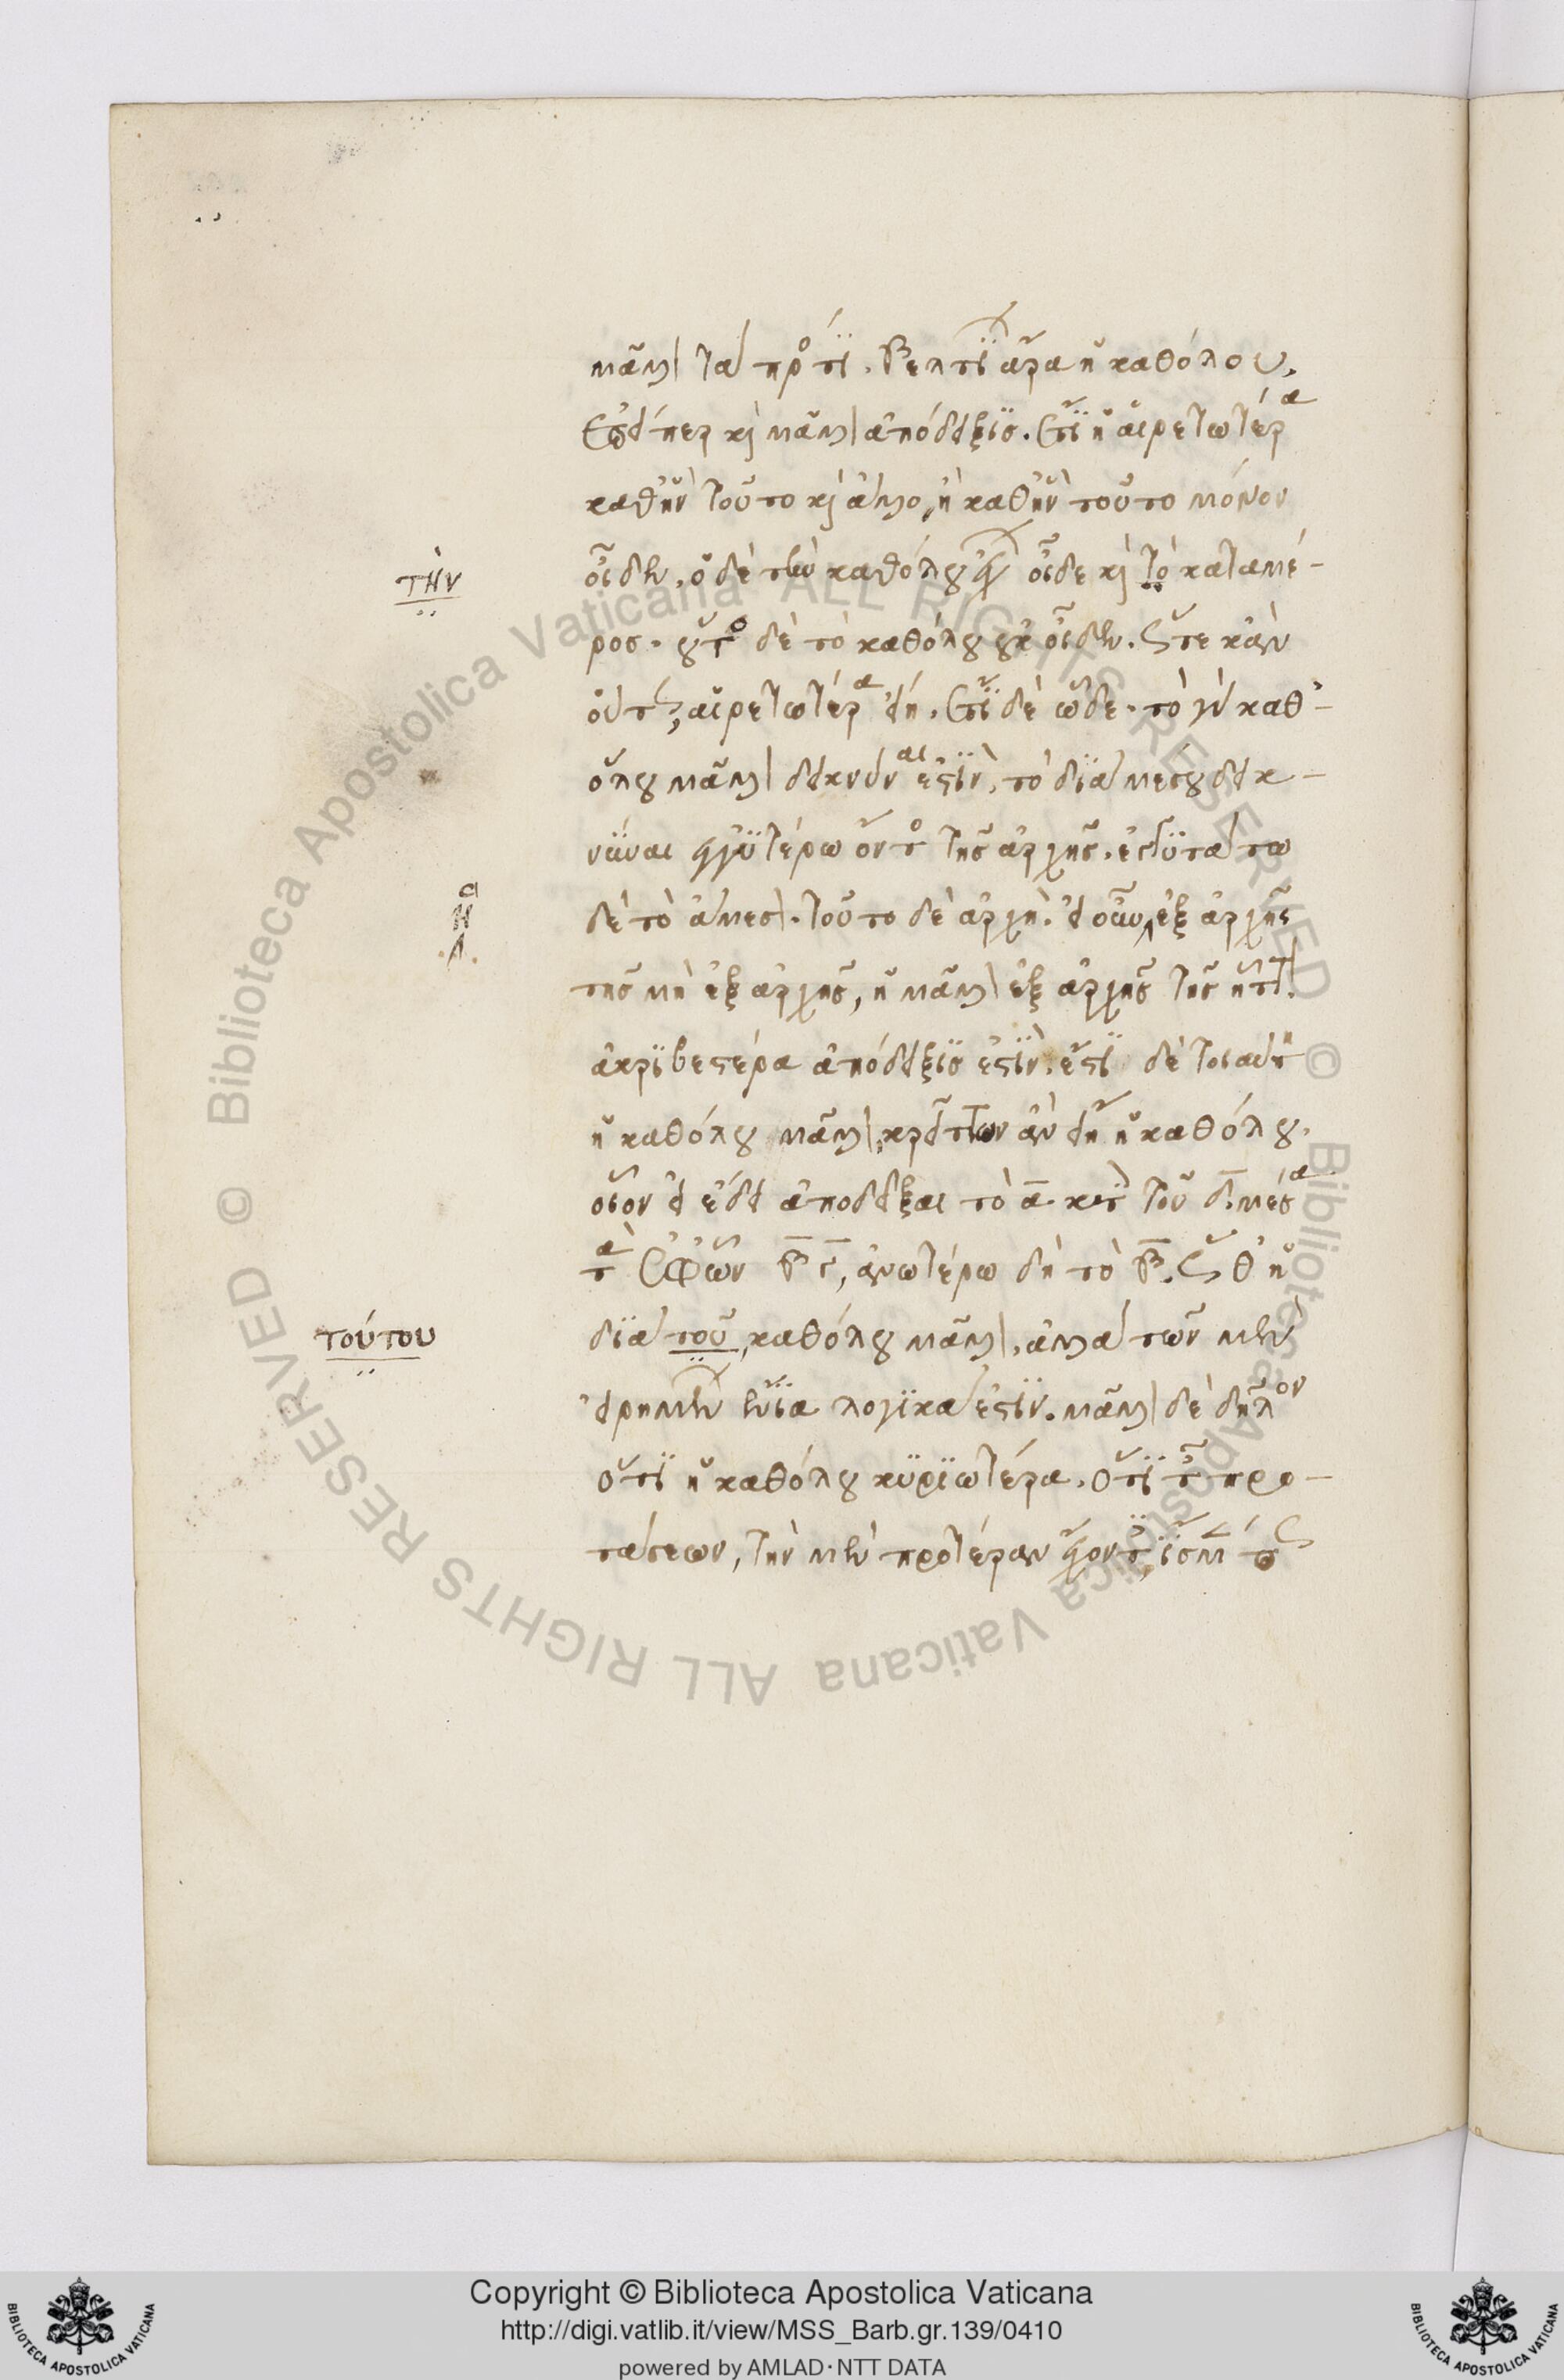 μᾶλλον τὰ πρός τι. βελτίων ἄρα ἡ καθόλου.
ἐπείπερ καὶ μᾶλλον ἀπόδειξις. ἔτι ἡ αἱρετωτέρα
καθ' ἣν τοῦτο καὶ ἄλλο, ἢ καθ' ἣν τοῦτο μόνον
οἶδεν. ὁ δὲ τὴν καθόλου ἔχων οἶδε καὶ τὸ καταμέ-
τὴν
ρος. οὗτος δὲ τὸ καθόλου οὐκ οἶδεν. ὥστε κἂν
οὕτως, αἱρετωτέρα εἴη. ἔτι δὲ ὧδε. τὸ γὰρ καθ'-
όλου μᾶλλον δεικνύναι ἐστὶν, τὸ διὰ μέσου δεικ-
νύναι ἐγγυτέρω ὄντος τῆς ἀρχῆς. ἐγγυτάτω
δὲ τὸ ἄμεσον. τοῦτο δὲ ἀρχὴ. εἰ οὖν ἐξ ἀρχῆς
ἡ
τῆς μὴ ἐξ ἀρχῆς, ἡ μᾶλλον ἐξ ἀρχῆς τῆς ἧττον.
ἀκριβεστέρα ἀπόδειξις ἐστὶν. ἔστι δὲ τοιαύτη
ἡ καθόλου μᾶλλον, κρεῖττων ἂν εἴη ἡ καθόλου.
οἷον εἰ ἔδει ἀποδεῖξαι τὸ α. κατὰ τοῦ δ. μέσα
τὰ ἐφ' ὧν β γ, ἀνωτέρω δὴ τὸ β. ὥσθ' ἡ
διὰ τοῦ, καθόλου μᾶλλον. ἀλλὰ τῶν μὲν
τούτου
εἰρημένων ἔνια λογικὰ ἐστὶν. μᾶλλον δὲ δῆλον
ὅτι ἡ καθόλου κυριωτέρα. ὅτι τῶν προ-
τάσεων, τὴν μὲν προτέραν ἔχοντες, ἴσμέν πως
Copyright © Biblioteca Apostolica Vaticana
http://digi.vatlib.it/view/MSS_Barb.gr.139/0410
powered by AMLAD·NTT DATA
BIBLIOTECA APOSTOLICA VATICANA
BIBLIOTECA APOSTOLICA VATICANA
© Biblioteca Apostolica Vaticana ALL RIGHTS RESERVED © Biblioteca Apostolica Vaticana ALL RIGHTS RESERVED